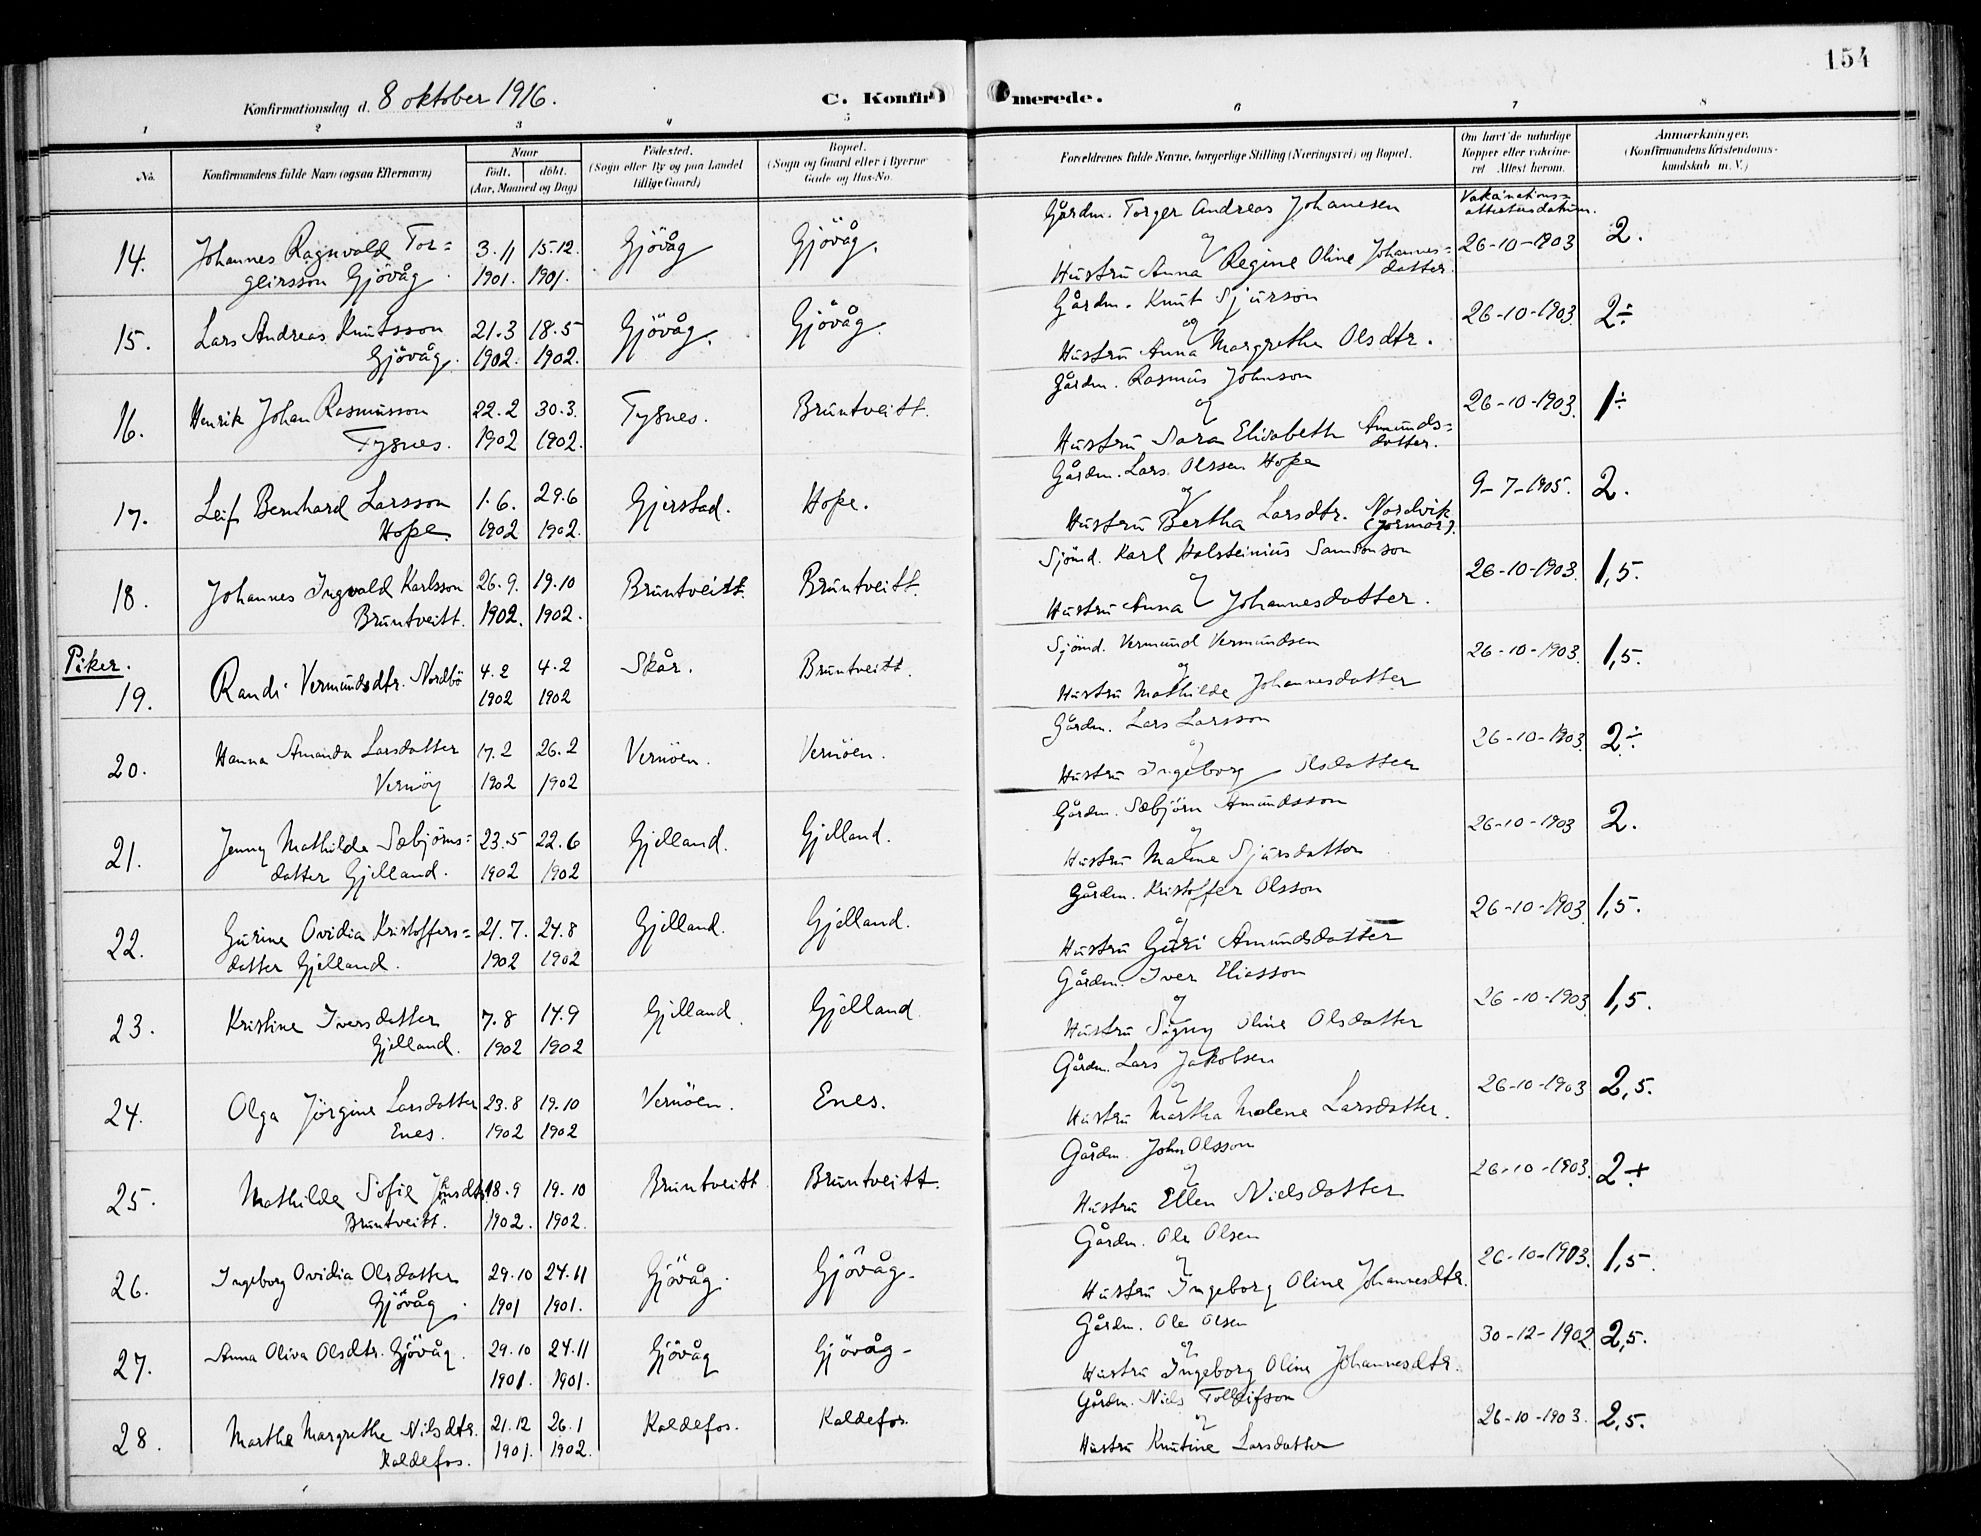 154
Konfirmationsdag d. 8 oktober 1916.
C. Konfirmerede.
1 2 3 4 5 6 7 8
No.
Konfirmandens fulde Navn (ogsaa Efternavn)
Naar
født. døbt.
(Aar, Maaned og Dag)
Fødested.
(Sogn eller By og paa Landet
tillige Gaard)
Bopæl.
(Sogn og Gaard eller i Byerne
Gade og Hus-No.
Forældrenes fulde Navne, borgerlige Stilling (Næringsvei) og Bopæl.
Om havt de naturlige
Kopper eller vakcine-
ret Attest herom.
Anmærkninger.
(Konfirmandens Kristendoms-
kundskab m. V.)
Vakcinations-
attestens datum.
14. Johannes Ragnvald Tor= 3.11 15.12. Gjövåg Gjövåg. Gårdm. Torger Andreas Johanesen
geirsson Gjövåg. 1901. 1901. og 26-10-1903 2.
Hustru Anna Regine Oline Johannes=
datter.
15. Lars Andreas Knutsson 21.3 18.5 Gjövåg. Gjövåg. Gårdm. Knut Sjurson
Gjövåg. 1902. 1902. og 26-10-1903. 2÷
Hustru Anna Margrethe Olsdtr.
16. Henrik Johan Rasmusson 22.2 30.3. Tysnes. Bruntveitt. Gårdm. Rasmus Johnson
Tysnes. 1902 1902. og 26-10-1903. 1÷
Hustru Sara Elisabeth Amunds=
datter.
17. Leif Bernhard Larsson 1.6. 29.6 Gjerstad. Hope. Gårdm. Lars Olssen Hope
Hope. 1902 1902. og 9-7-1905. 2.
Hustru Bertha Larsdtr. Nordvik
18. Johannes Ingvald Karlsson 26.9. 19.10 Bruntveitt. Bruntveitt. Sjömd. Karl Holsteinius Samsonson
Bruntveitt. 1902. 1902. og 26-10-1903. 1,5.
Hustru Anna Johannesdatter.
Piker.
19. Randi Vermundsdtr. Nordbö 4.2 4.2 Skår. Bruntveitt. Sjömd. Vermund Vermundsen
1902 1902 og 26-10-1903. 1,5.
Hustru Mathilde Johannesdatter
20. Hanna Amanda Larsdatter 17.2 26.2 Vernöen. Vernöen. Gårdm. Lars Larsson
Vernöy 1902 1902 og 26-10-1903. 2÷
Hustru Ingeborg Olsdatter
21. Jenny Mathilde Sæbjörns= 23.5 22.6 Gjelland. Gjelland. Gårdm. Sæbjörn Amundsson
datter Gjelland. 1902 1902 og 26-10-1903 2.
Hustru Malene Sjursdatter
22. Gurine Ovidia Kristoffers= 21.7. 24.8 Gjelland. Gjelland. Gårdm. Kristoffer Olsson
datter Gjelland. 1902 1902 og 26-10-1903. 1,5.
Hustru Guri Amundsdatter
23. Kristine Iversdatter 7.8 14.9 Gjelland. Gjelland Gårdm. Iver Eliasson
Gjelland. 1902 1902 og 26-10-1903. 1,5.
Hustru Signy Oline Olsdatter
24. Olga Jörgine Larsdatter 23.8 19.10 Vernöen. Enes. Gårdm. Lars Jakobsen
Enes. 1902 1902 og 26-10-1903 2,5.
Hustru Martha Malene Larsdatter.
25. Mathilde Sofie Johnsdtr. 18.9 19.10 Bruntveitt Bruntveitt. Gårdm. John Olsson
Bruntveitt. 1902. 1902. og 26-10-1903. 2+
Hustru Ellen Nielsdatter
26. Ingeborg Ovidia Olsdatter 29.10 24.11 Gjövåg. Gjövåg. Gårdm. Ole Olsen
Gjövåg. 1901 1901. og 26-10-1903. 1,5.
Hustru Ingeborg Oline Johannesdtr.
27. Anna Oliva Olsdtr. Gjövåg. 29.10 24.11 Gjövåg Gjövåg- Gårdm. Ole Olsen
1901. 1901. og 30-12-1902 2,5.
Hustru Ingeborg Oline Johannesdtr.
28. Martha Margrethe Nilsdtr. 21.12 26.1 Kaldefos. Kaldefos. Gårdm. Niels Tolleifson
Kaldefos. 1901. 1902. og 26-10-1903. 2,5.
Hustru Knutine Larsdatter